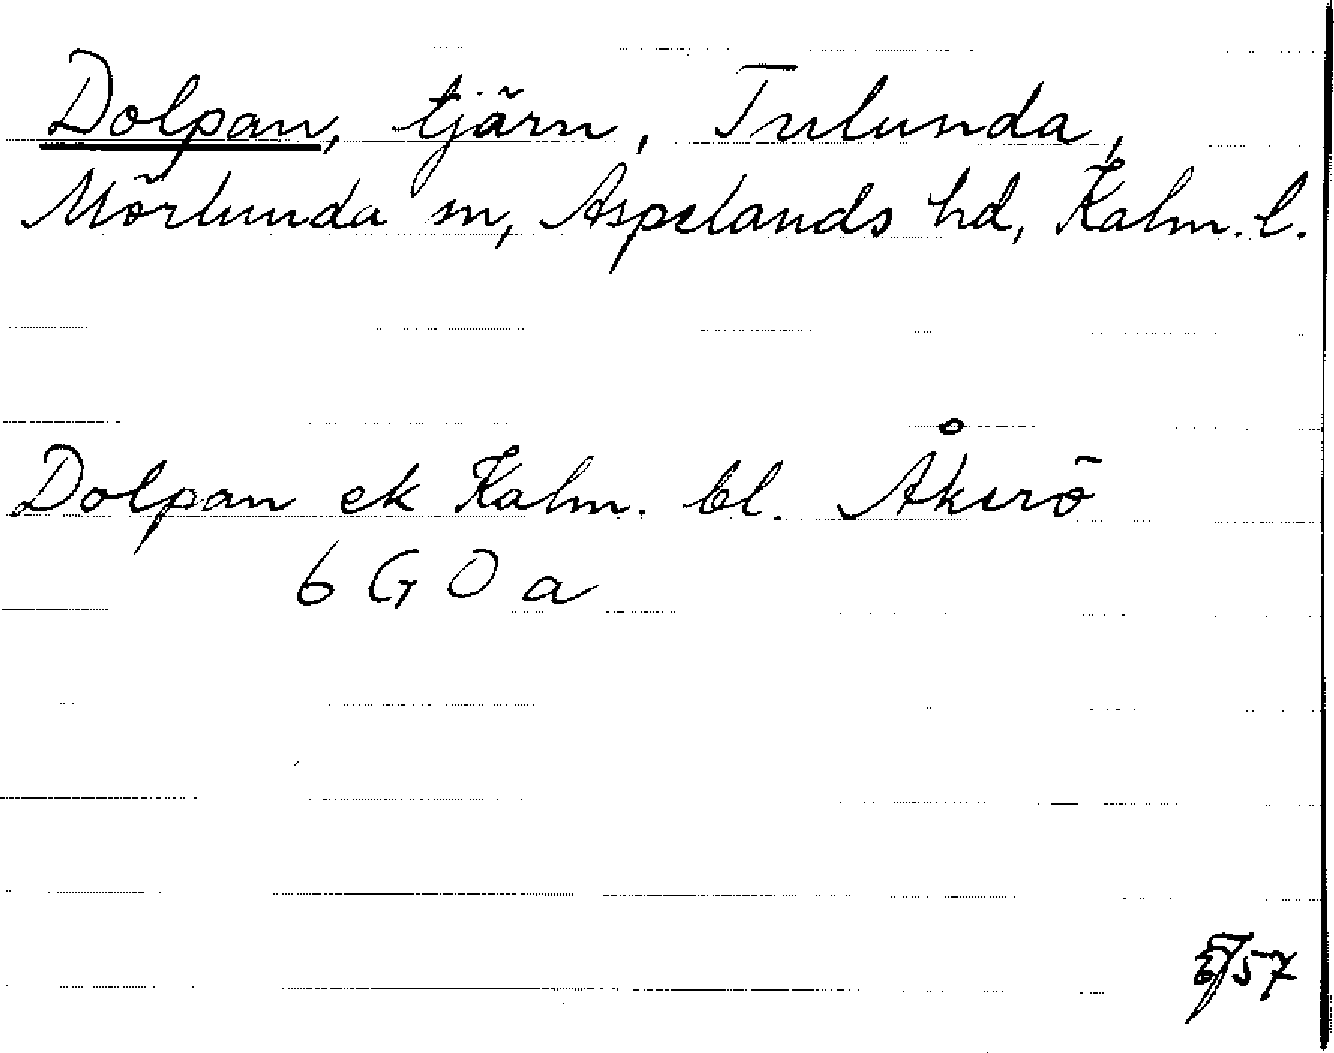 Dolpan, tjärn, Tulunda,
Mörlunda sn, Aspelands hd, Kalm. l.
Dolpan ek Kalm. bl. Åkerö
6 G O a
57